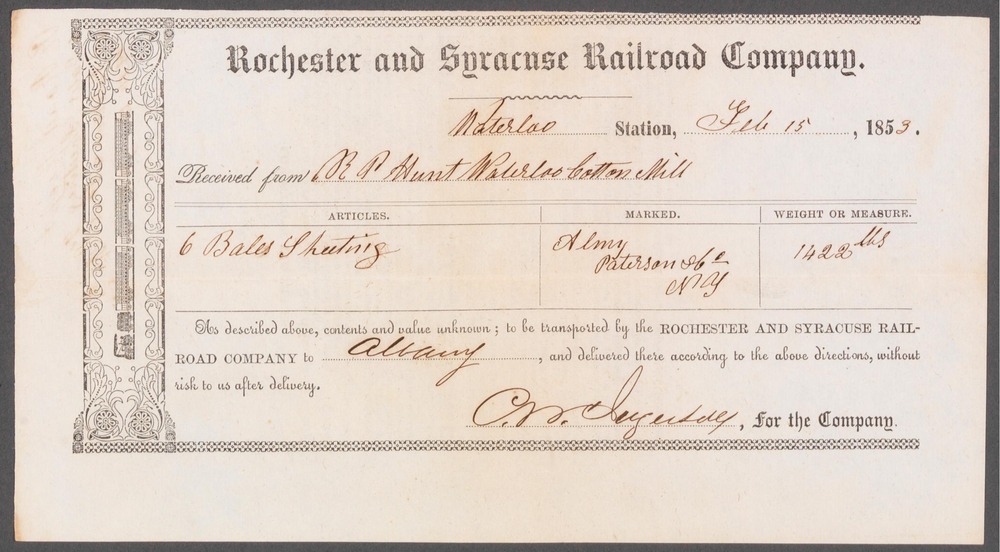 Rochester and Syracuse Railroad Company.
Waterloo Station, Feb 15, 1853.
Received from R P Hunt Waterloo Cotton Mill
ARTICLES. MARKED. WEIGHT OR MEASURE.
6 Bales Sheeting Almy 1422 lbs
Paterson & Co
N Y
As described above, contents and value unknown; to be transported by the ROCHESTER AND SYRACUSE RAIL-
ROAD COMPANY to Albany, and delivered there according to the above directions, without
risk to us after delivery.
C. W. , For the Company.